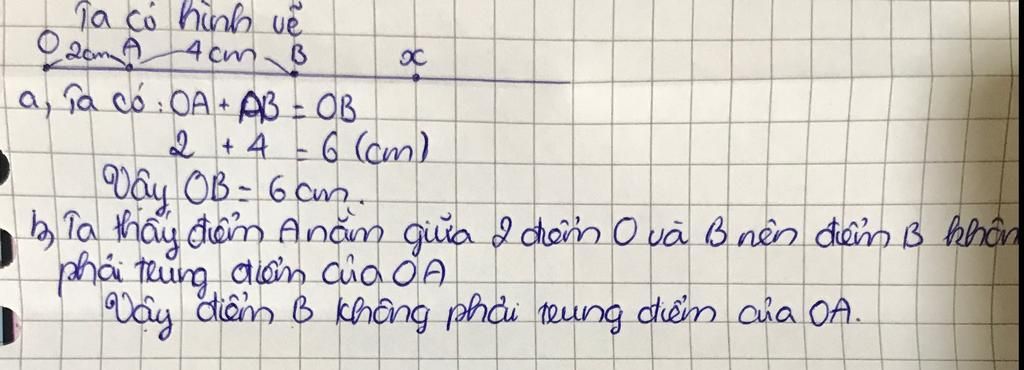 Ta có hình vẽ
O 2cm A 4cm B x
a, Ta có: OA + AB = OB
2 + 4 = 6 (cm)
Vậy OB = 6 cm.
b, Ta thấy điểm A nằm giữa 2 điểm O và B nên điểm B khôn
phải trung điểm của OA
Vậy điểm B không phải trung điểm của OA.